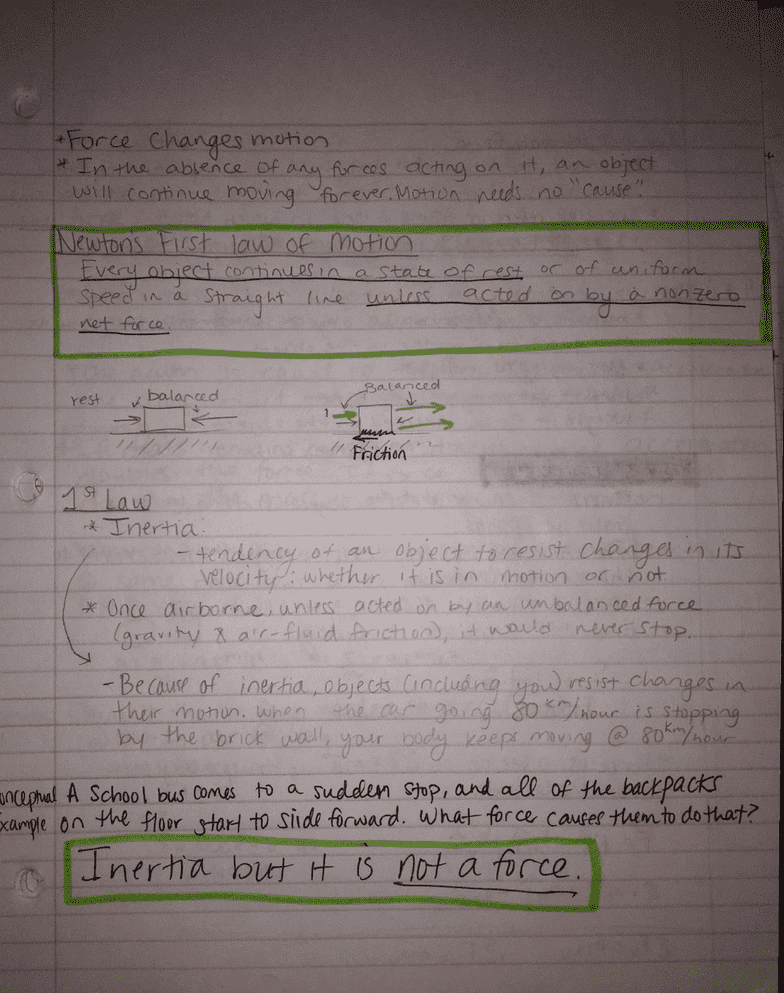 *Force Changes motion
* In the absence of any forces acting on it, an object
will continue moving forever. Motion needs no "cause".
Newton's First law of Motion
Every object continues in a state of rest or of uniform
speed in a straight line unless acted on by a nonzero
net force.
rest balanced
Balanced
Friction
1st Law
* Inertia:
- tendency of an object to resist changes in its
velocity: whether it is in motion or not
* Once airborne, unless acted on by an unbalanced force
(gravity & air-fluid friction), it would never stop.
- Because of inertia, objects (including you) resist changes in
their motion. When the car going 80 km/hour is stopping
by the brick wall, your body keeps moving @ 80 km/hour
onceptual A School bus comes to a sudden stop, and all of the backpacks
xample on the floor start to slide forward. What force causes them to do that?
Inertia but it is not a force.